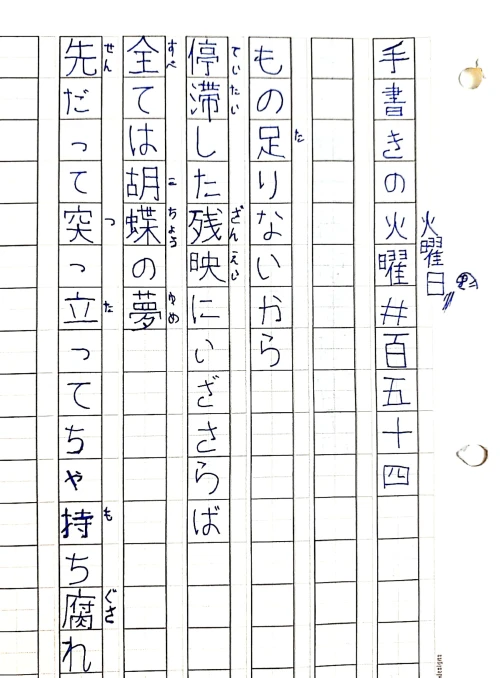 火曜日
手書きの火曜#百五十四
もの足りないから
た
停滞した残映にいざさらば
ていたい
ざんえい
全ては胡蝶の夢
すべ
こちょう
ゆめ
先だって突っ立ってちゃ持ち腐れ
せん
つ
た
も
ぐさ
designs